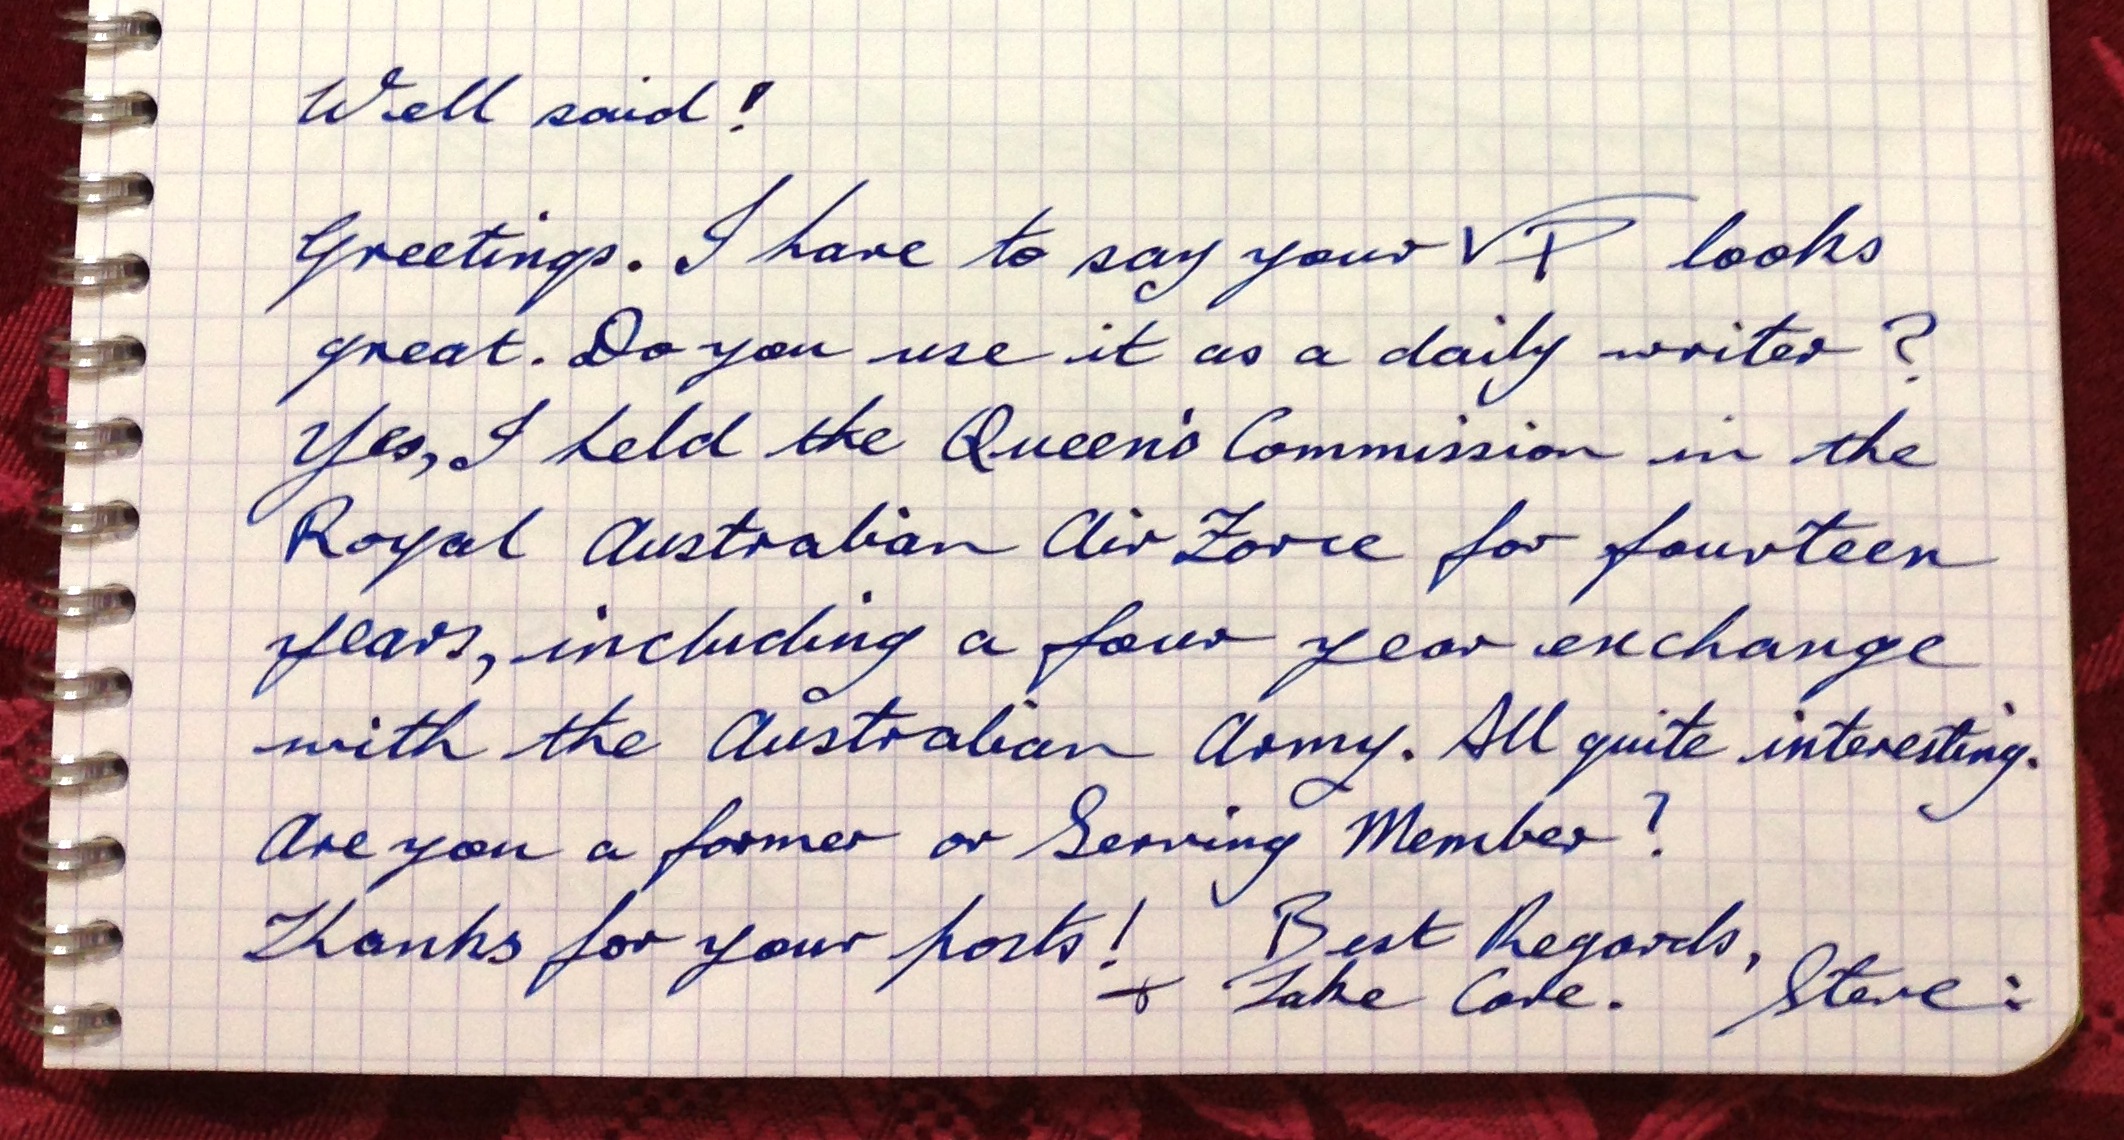 Well said!
Greetings. I have to say your VP looks
great. Do you use it as a daily writer?
Yes, I held the Queen's Commission in the
Royal Australian Air Force for fourteen
years, including a four year exchange
with the Australian Army. All quite interesting.
Are you a former or Serving Member?
Thanks for your posts! Best Regards,
+ Take Care. Steve: